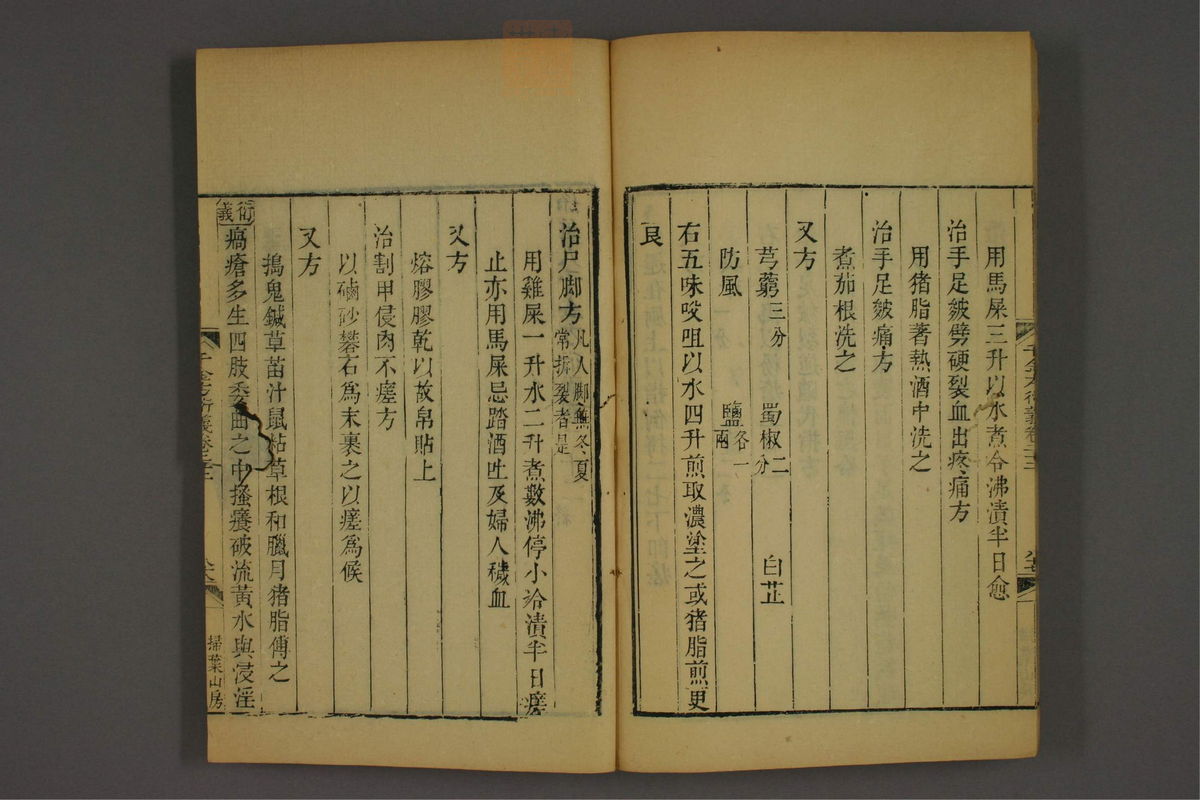 用馬屎三升以水煮令沸漬半日愈
治手足皴劈硬裂血出疼痛方
用猪脂著熱酒中洗之
治手足皴痛方
煮茄根洗之
又方
芎藭三分 蜀椒二分 白芷
防風 鹽各一兩
右五味㕮咀以水四升煎取濃塗之或猪脂煎更
良
治尸脚方凡人脚無冬夏常拆裂者是
用雞屎一升水二升煮數沸停小冷漬半日瘥
止亦用馬屎忌踏酒吐及婦人穢血
又方
熔膠膠乾以故帛貼上
治割甲侵肉不瘥方
以磠砂礬石爲末裹之以瘥爲候
又方
搗鬼鍼草苗汁鼠粘草根和臘月猪脂傅之
衍義
瘑瘡多生四肢委曲之中搔癢破流黃水與浸淫
千金方衍義卷
掃葉山房